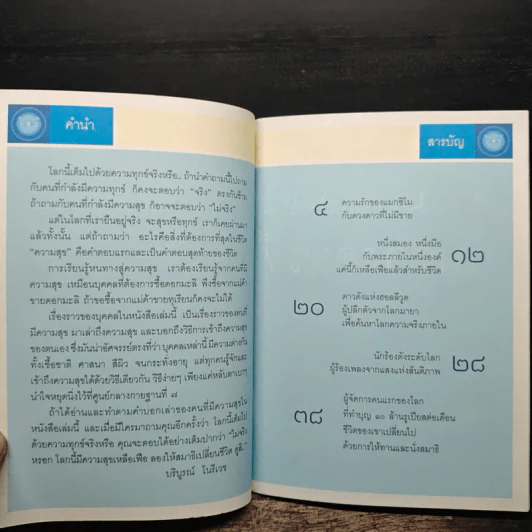 คำนำ
โลกนี้เต็มไปด้วยความทุกข์จริงหรือ.. ถ้านำคำถามนี้ไปถาม
กับคนที่กำลังมีความทุกข์ ก็คงจะตอบว่า "จริง" ตรงกันข้าม
ถ้าถามกับคนที่กำลังมีความสุข ก็อาจจะตอบว่า "ไม่จริง"
แต่ในโลกที่เรายืนอยู่จริง จะสุขหรือทุกข์ เราก็เคยผ่านมา
แล้วทั้งนั้น แต่ถ้าถามว่า อะไรคือสิ่งที่ต้องการที่สุดในชีวิต
"ความสุข" คือคำตอบแรกและเป็นคำตอบสุดท้ายของชีวิต
การเรียนรู้หนทางสู่ความสุข เราต้องเรียนรู้จากคนที่มี
ความสุข เหมือนบุคคลที่ต้องการซื้อดอกมะลิ พึงซื้อจากแม่ค้า
ขายดอกมะลิ ถ้าขอซื้อจากแม่ค้าขายทุเรียนก็คงจะไม่ได้
เรื่องราวของบุคคลในหนังสือเล่มนี้ เป็นเรื่องราวของคนที่
มีความสุข มาเล่าถึงความสุข และบอกถึงวิธีการเข้าถึงความสุข
ของตนเอง ซึ่งมันน่าอัศจรรย์ตรงที่ว่า บุคคลเหล่านี้ มีความต่างกัน
ทั้งเชื้อชาติ ศาสนา สีผิว จนกระทั่งอายุ แต่ทุกคนรู้จักและ
เข้าถึงความสุขได้ด้วยวิธีเดียวกัน วิธีง่ายๆ เพียงแค่หลับตาเบาๆ
นำใจหยุดนิ่งไว้ที่ศูนย์กลางกายฐานที่ ๗
ถ้าได้อ่านและทำตามคำบอกเล่าของคนที่มีความสุขใน
หนังสือเล่มนี้ และเมื่อมีใครมาถามคุณอีกครั้งว่า โลกนี้เต็มไป
ด้วยความทุกข์จริงหรือ คุณจะตอบได้อย่างเต็มปากว่า "ไม่จริง
หรอก โลกนี้มีความสุขเหลือเฟือ ลองให้สมาธิเปลี่ยนชีวิต ดูสิ.."
บริบูรณ์ โนรีเวช
สารบัญ
๔ ความรักของแมกซิโม
กับดวงดาวที่ไม่มีขาย
หนึ่งสมอง หนึ่งมือ ๑๒
กับพระภายในหนึ่งองค์
แค่นี้ก็เหลือเฟือแล้วสำหรับชีวิต
๒๐ ดาวดังแห่งฮอลลีวูด
ผู้ปลีกตัวจากโลกมายา
เพื่อค้นหาโลกความจริงภายใน
นักร้องดังระดับโลก ๒๘
ผู้ร้องเพลงจากแสงแห่งสันติภาพ
๓๘ ผู้จัดการคนแรกของโลก
ที่ทำบุญ ๑๐ ล้านรูเปียสต่อเดือน
ชีวิตของเขาเปลี่ยนไป
ด้วยการให้ทานและนั่งสมาธิ